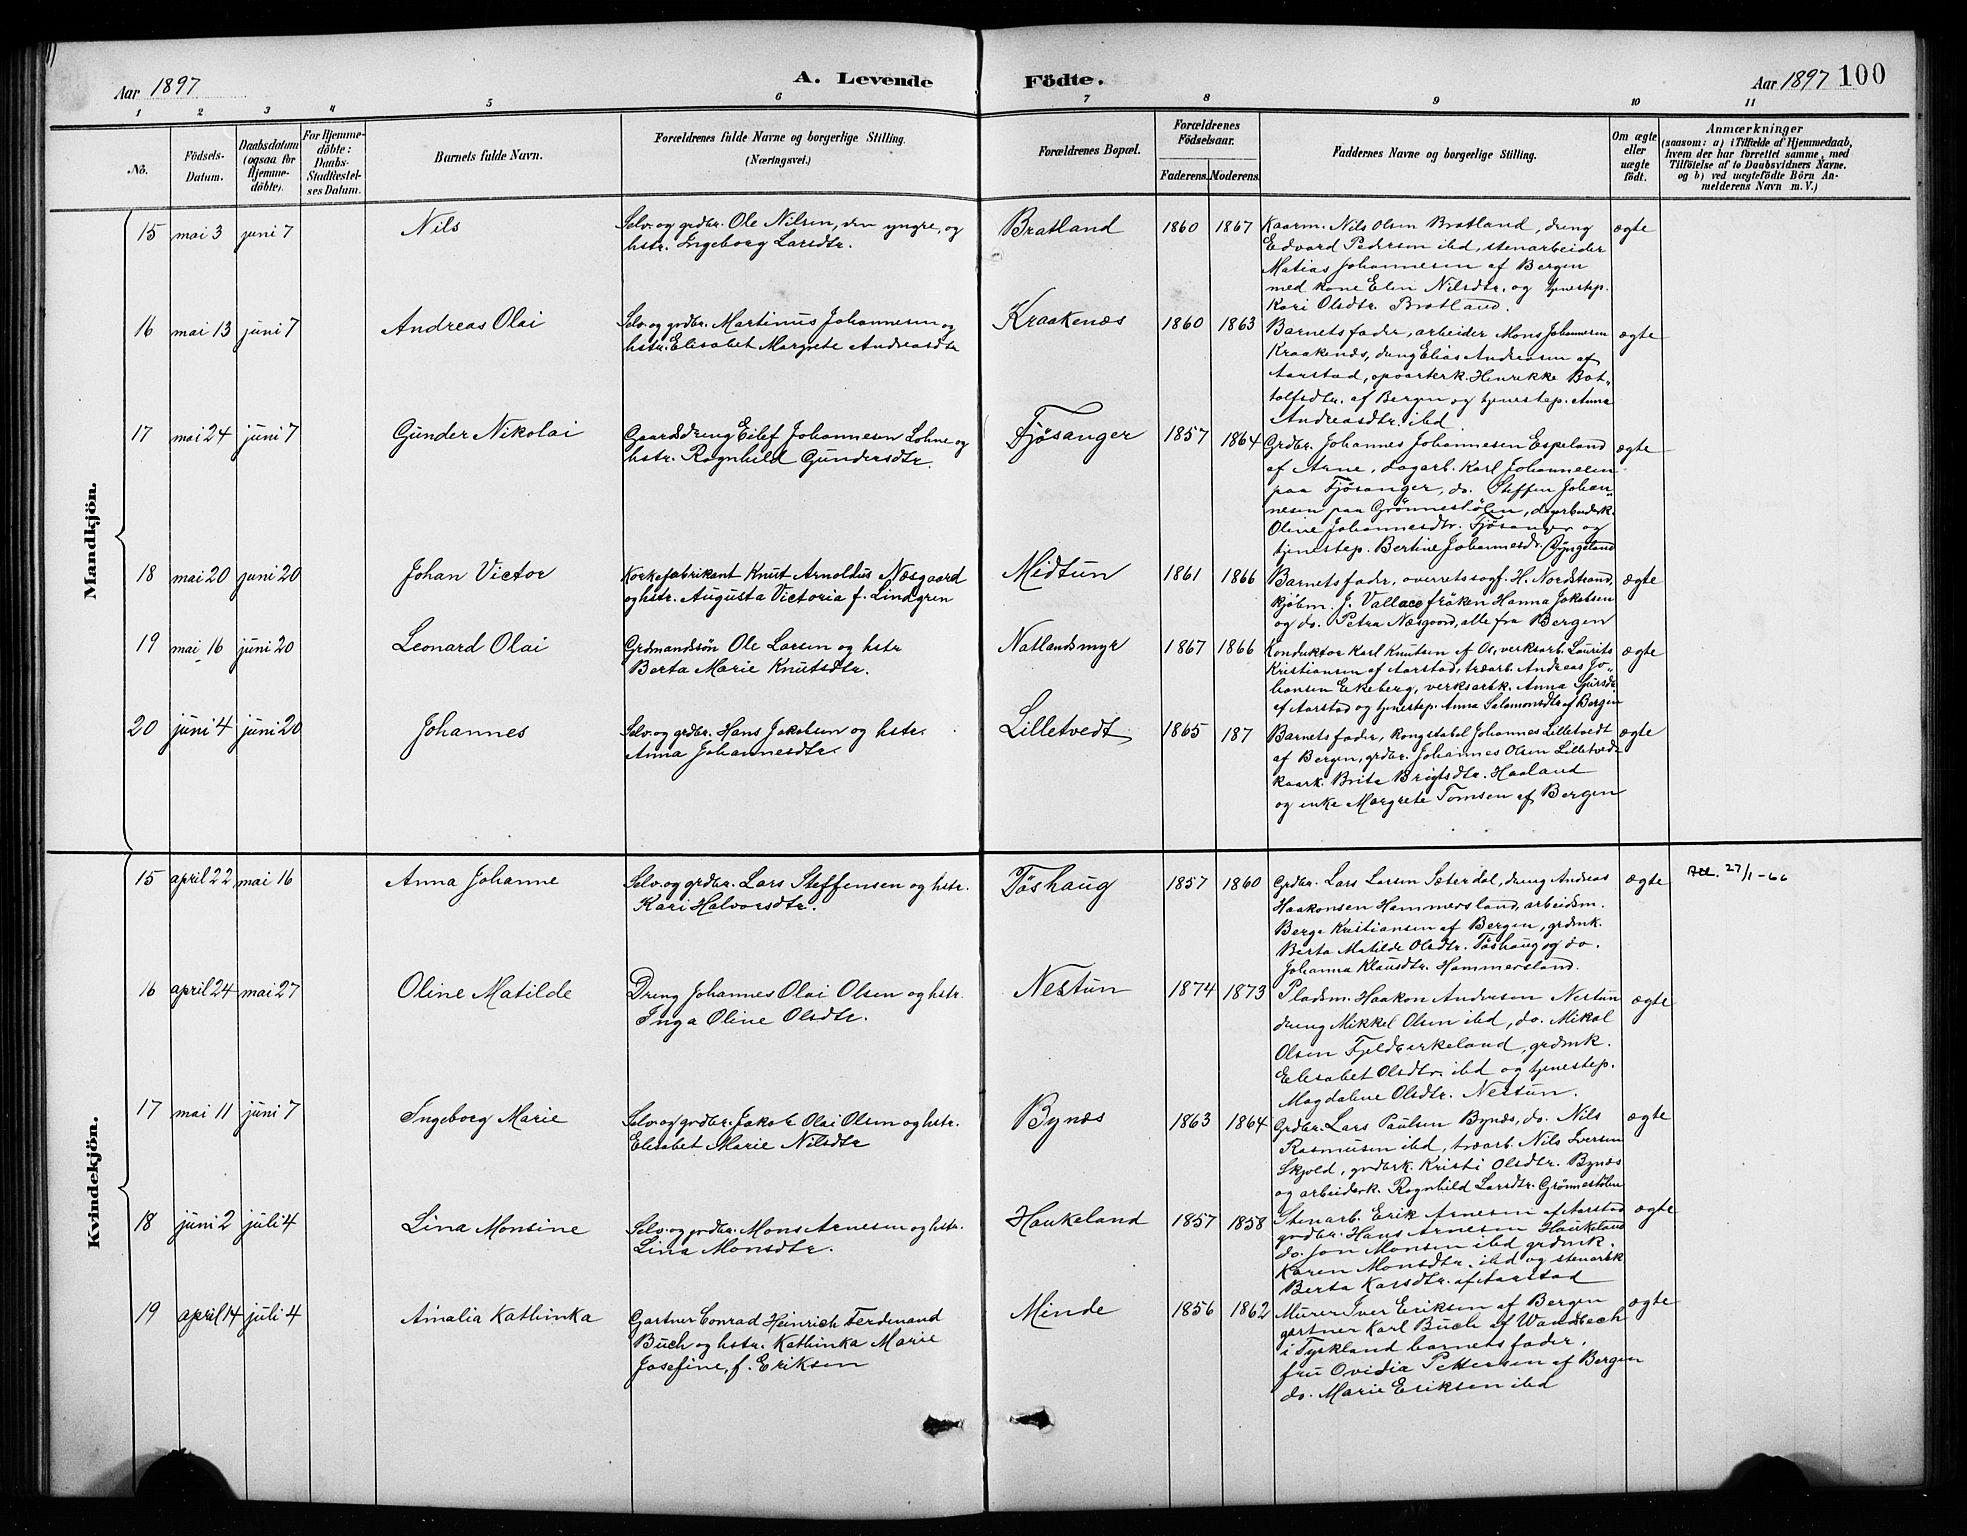 Aar 1897
A. Levende
Födte.
Aar 1897 100
1 2 3 4 5 6 7 8 9 10 11
No.
Födsels-
Datum.
Daabsdatum
(ogsaa for
Hjemme-
döbte).
For Hjemme-
döbte:
Daabs-
Stadfæstel-
ses Datum.
Barnets fulde Navn.
Forældrenes fulde Navne og borgerlige Stilling.
(Næringsvei.)
Forældrenes Bopæl.
Forældrenes
Födselsaar.
Faderens. Moderens.
Faddernes Navne og borgerlige Stilling.
Om ægte
eller
uægte
födt.
Anmærkninger
(saasom: a) i Tilfælde af Hjemmedaab,
hvem der har forrettet samme, med
Tilföielse af to Daabsvidners Navne.
og b) ved uægtefödte Börn An-
melderens Navn m. V.)
Mandkjön.
15 mai 3 juni 7
Nils
Selv. og grdbr. Ole Nilsen, den yngre, og
hstr. Ingeborg Larsdtr.
Bratland
1860 1867
Kaarm. Nils Olsen Bratland, dreng
Edvard Pedersen ibd, stenarbeider
Matias Johannesen af Bergen
med kone Elen Nilsdtr. og tjenestep.
Kari Olsdtr. Bratland.
ægte
16 mai 13 juni 7
Andreas Olai
Selv. og grdbr. Martinus Johannesen og
hstr. Elisabet Margrete Andreasdtr
Kraakenæs
1860 1863
Barnets fader, arbeider Mons Johannesen
Kraakenæs, dreng Elias Andreasen af
Aarstad, opvarterk. Henrikke Bot-
tolfsdtr. af Bergen og tjenestep. Anna
Andreasdtr. ibd.
ægte
17 mai 24 juni 7
Gunder Nikolai
Gaardsdreng Eilef Johannesen Lohne og
hstr. Ragnhild Gundersdtr.
Fjösanger
1857 1864
Grdbr. Johannes Johannesen Espeland
af Arne, dagarb. Karl Johannesen
paa Fjösanger, do. Steffen Johan-
nesen paa Grönnestölen, dagarbeiderk.
Oline Johannesdtr. Fjösanger og
tjenestep. Bertine Johannesdr.
ægte
18 mai 20 juni 20
Johan Victor
Korkefabrikant Knut Arnoldus Næsgaard
og hstr. Augusta Victoria f. Lindgren
Midtun
1861 1866
Barnets fader, overretssagf. H. Nordstrand,
kjöbm. J. Vallace fröken Hanna Jakobsen
og do. Petra Næsgaard, alle fra Bergen
ægte
19 mai 16 juni 20
Leonard Olai
Grdmandssön Ole Larsen og hstr
Berta Marie Knutsdtr.
Natlandsmyr
1867 1866
Konduktör Karl Knutsen af Os, verksarb. Laurits
Kristiansen af Aarstad, træarb. Andreas Jo-
hansen Eikeberg, verksarbk. Anna Sjursdtr.
af Aarstad og tjenestep. Anna Salomonsdtr af Bergen
ægte
20 juni 4 juni 20
Johannes
Selv. og grdbr. Hans Jakobsen og hstr.
Anna Johannesdtr.
Lilletvedt
1865 187
Barnets fader, Kongstabel Johannes Lilletvedt
af Bergen, grdbr. Johannes Olsen Lilletvedt
kaark. Brita Brigtsdtr. Haaland
og enke Margrete Tomsen af Bergen
ægte
Kvindekjön.
15 april 22 mai 16
Anna Johanne
Selv. og grdbr. Lars Steffensen og hstr.
Kari Halvorsdtr.
Töshaug
1857 1860
Grdbr. Lars Larsen Sæterdal, dreng Andreas
Haakonsen Hammersland, arbeidsm.
Berge Kristiansen af Bergen, grdmk.
Berta Matilde Olsdtr. Töshaug og do.
Johanna Klausdtr. Hammersland.
ægte
Att. 27/1-66
16 april 24 mai 27
Oline Matilde
Dreng Johannes Olai Olsen og hstr.
Inga Oline Olsdtr.
Nestun
1874 1873
Pladsm. Haakon Andersen Nestun
dreng Mikkel Olsen ibd, do. Mikal
Olsen Fjeldbirkeland, grdmk.
Elisabet Olsdtr. ibd og tjenestep.
Magdalene Olsdtr. Nestun.
ægte
17 mai 11 juni 7
Ingeborg Marie
Selv. og grdbr. Jakob Olai Olsen og hstr.
Elisabet Marie Nilsdtr
Bynæs
1863 1864
Grdbr. Lars Paulsen Bynæs, do. Nils
Rasmusen ibd, træarb. Nils Iversen
Skjold, grdbrk. Kristi Olsdtr. Bynæs
og arbeiderk. Ragnhild Larsdtr. Grönnestölen
ægte
18 juni 2 juli 4
Lina Monsine
Selv. og grdbr. Mons Arnesen og hstr.
Lina Monsdtr.
Haukeland
1857 1858
Stenarb. Erik Arnesen af Aarstad
grdbr. Hans Arnesen Haukeland
do. Jon Monsen ibd grdmk.
Karen Monsdtr. ibd og stenarbk
Berta Larsdtr. af Aarstad
ægte
19 april 14 juli 4
Amalia Kathinka
Gartner Conrad Heinrich Ferdinand
Buch og hstr. Kathinka Marie
Josefine, f. Eriksen
Minde
1856 1862
Murer Iver Eriksen af Bergen
gartner Karl Buch af Wandbech
i Tyskland barnets fader.
fru Ovidia Pettersen af Bergen
do. Marie Eriksen ibd
ægte